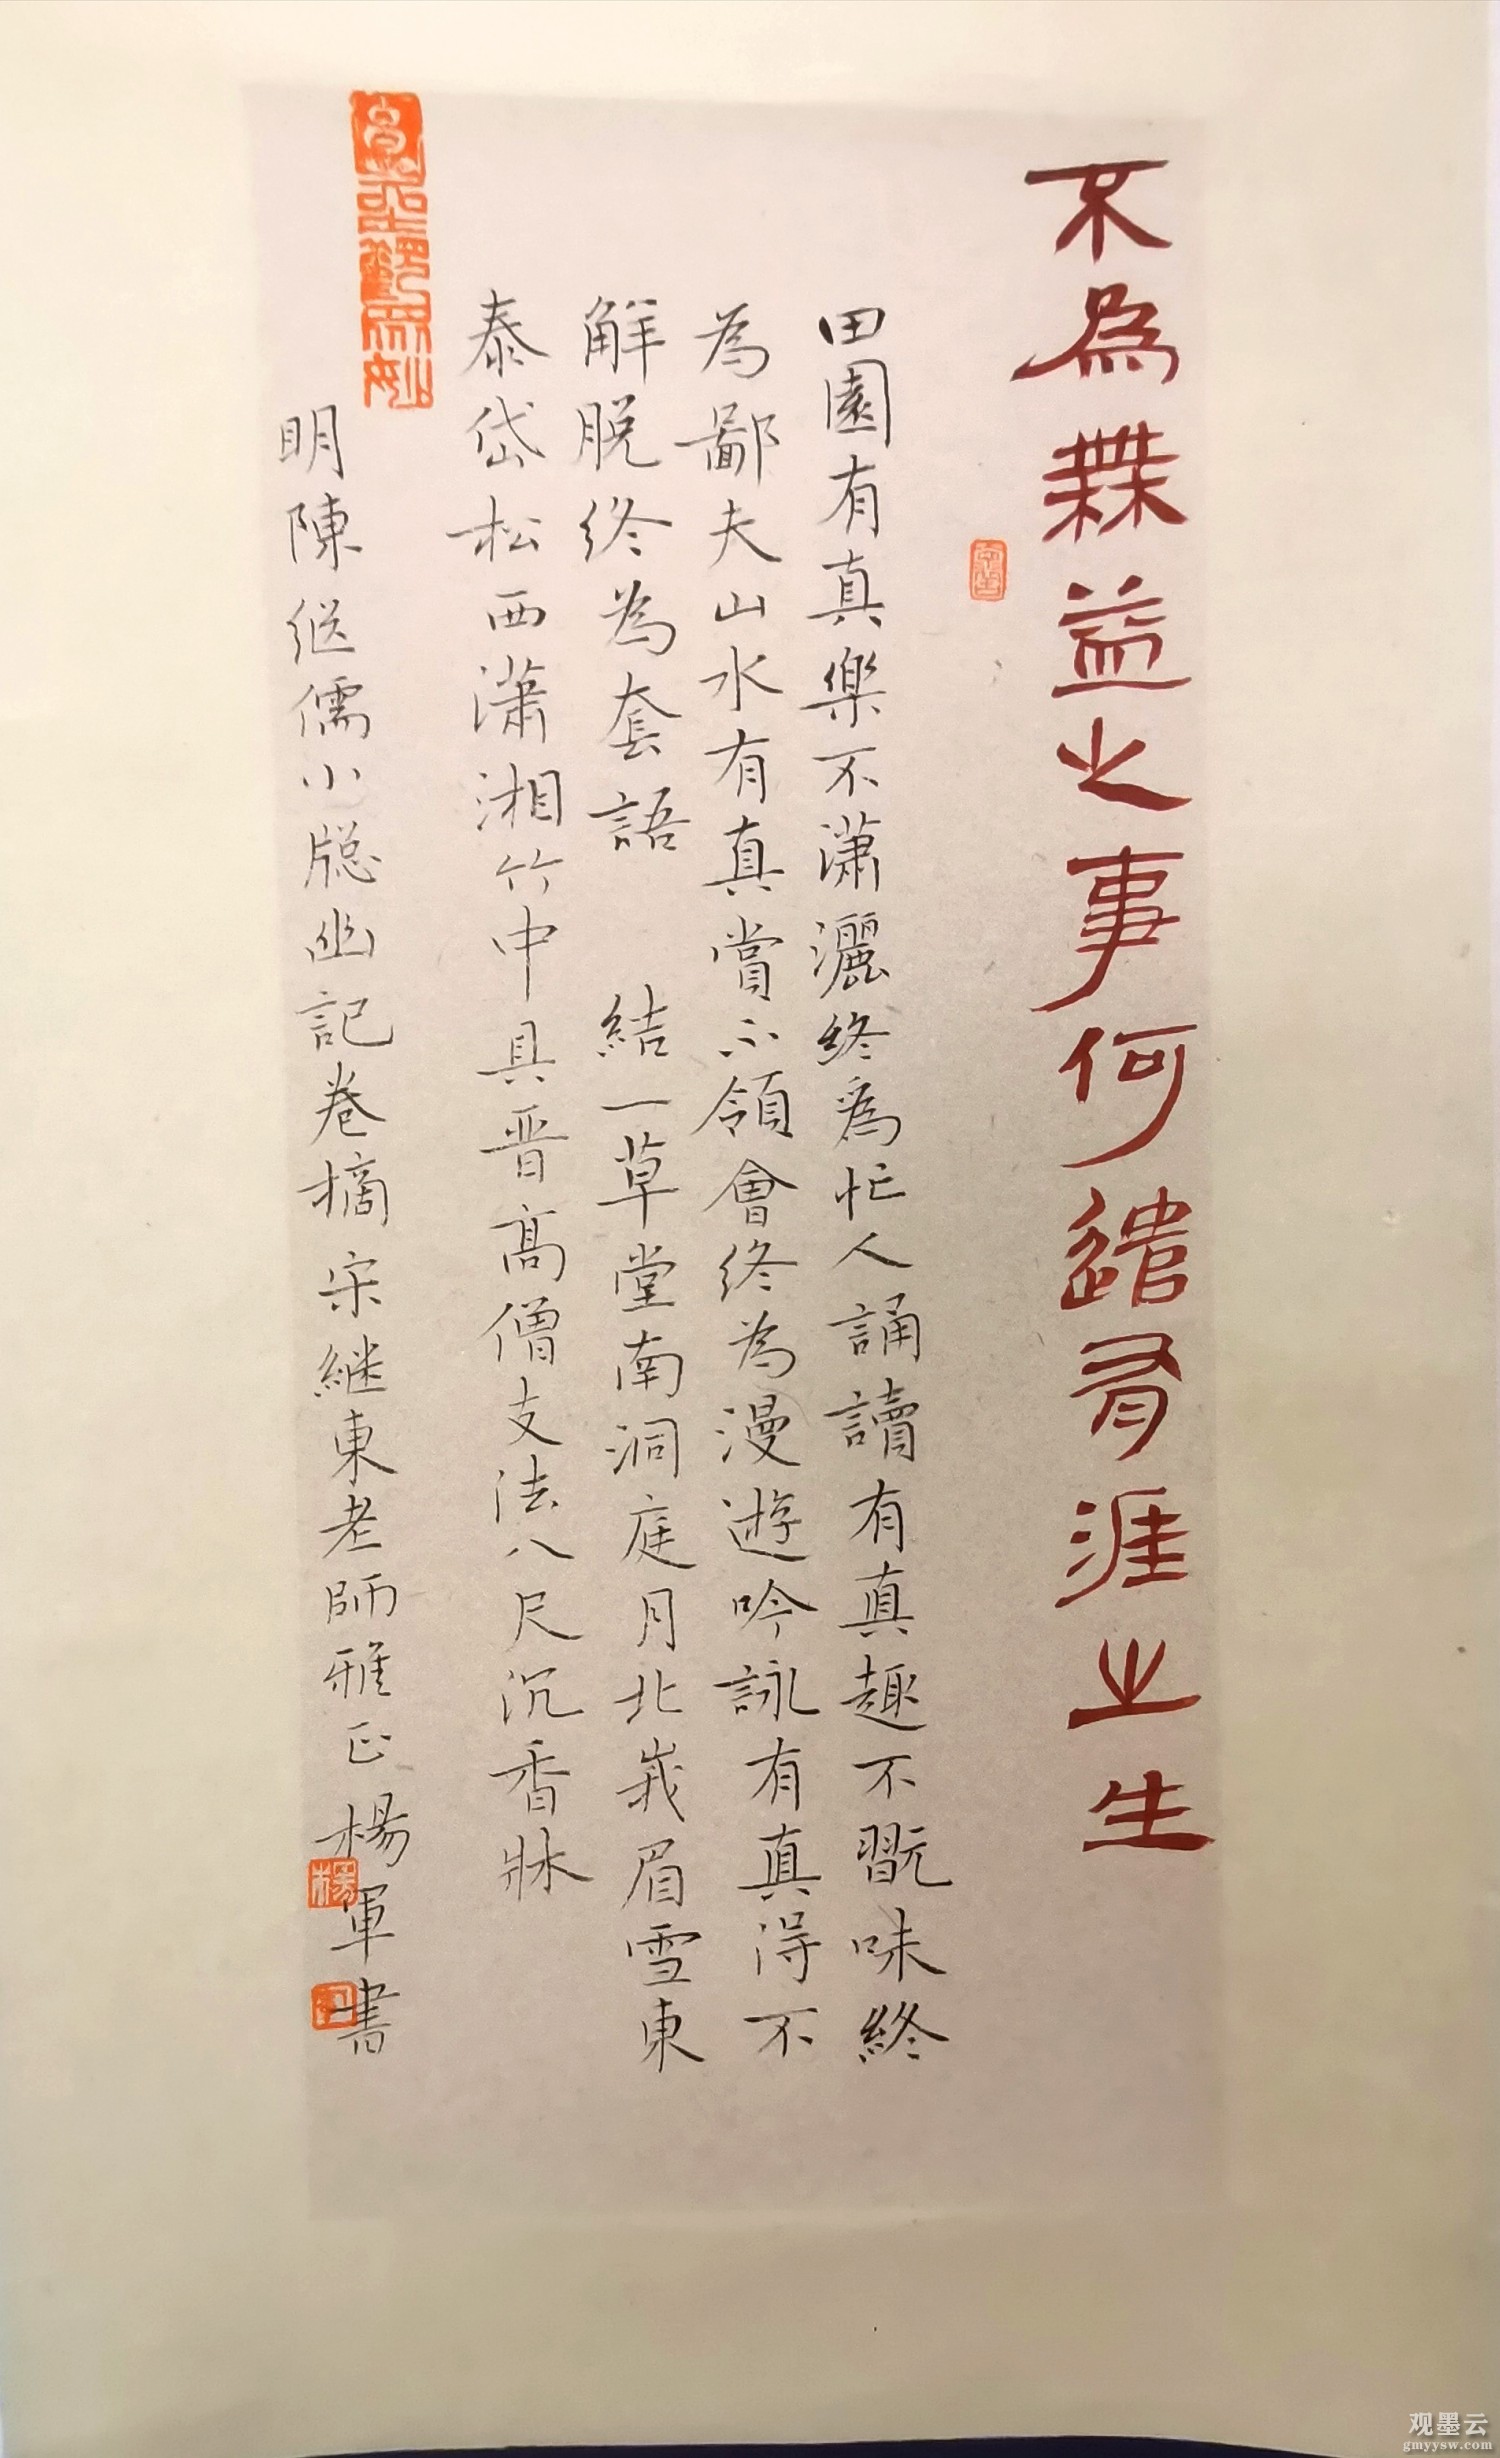 不為無益之事何遣有涯之生
田園有真樂不瀟灑終為忙人誦讀有真趣不翫味終
為鄙夫山水有真賞不領會終為漫遊吟詠有真得不
解脫終為套語 結一草堂南洞庭月北峩眉雪東
泰岱松西瀟湘竹中具晋高僧支法八尺沉香牀
明陳继儒小牕幽記卷摘宋継東老師雅正楊軍書
楊
观墨云
gmyysw.com